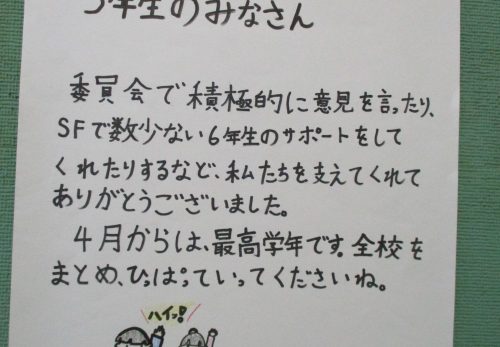 5年生のみなさん
委員会で積極的に意見を言ったり、
SFで数少ない6年生のサポートをして
くれたりするなど、私たちを支えてくれて
ありがとうございました。
4月からは、最高学年です。全校を
まとめ、ひっぱっていってくださいね。
ハイっ!